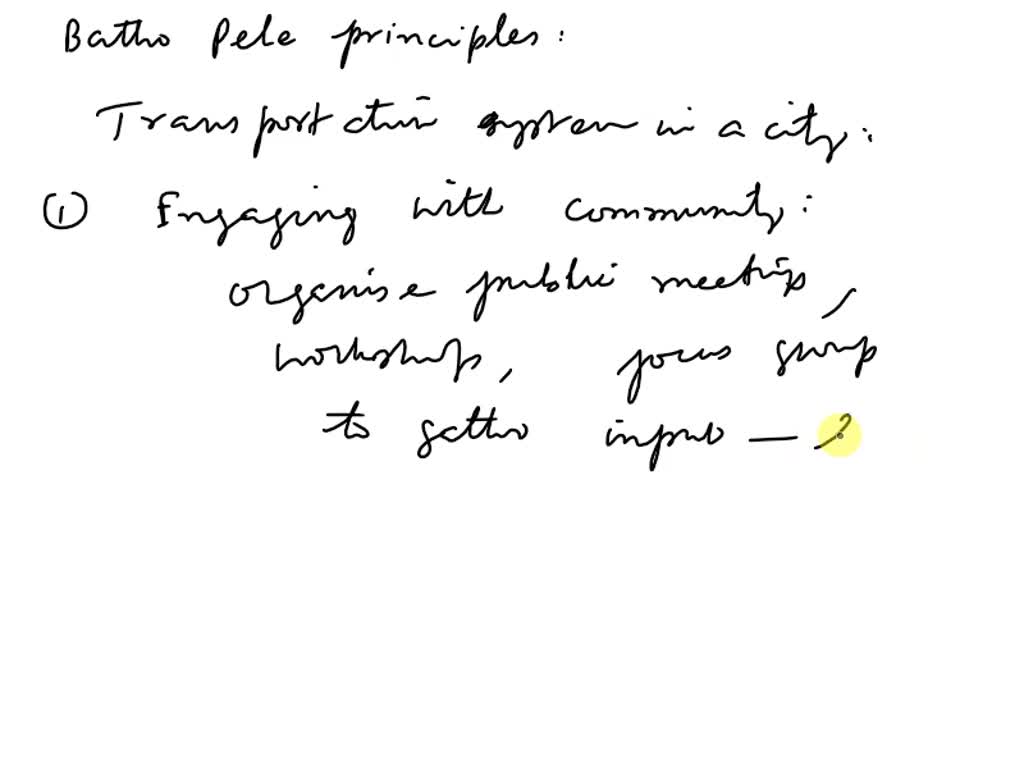 Batho Pele principles:
Transportation system in a city:
① Engaging with community:
organise public meetings,
workshops, focus group
to gather input —